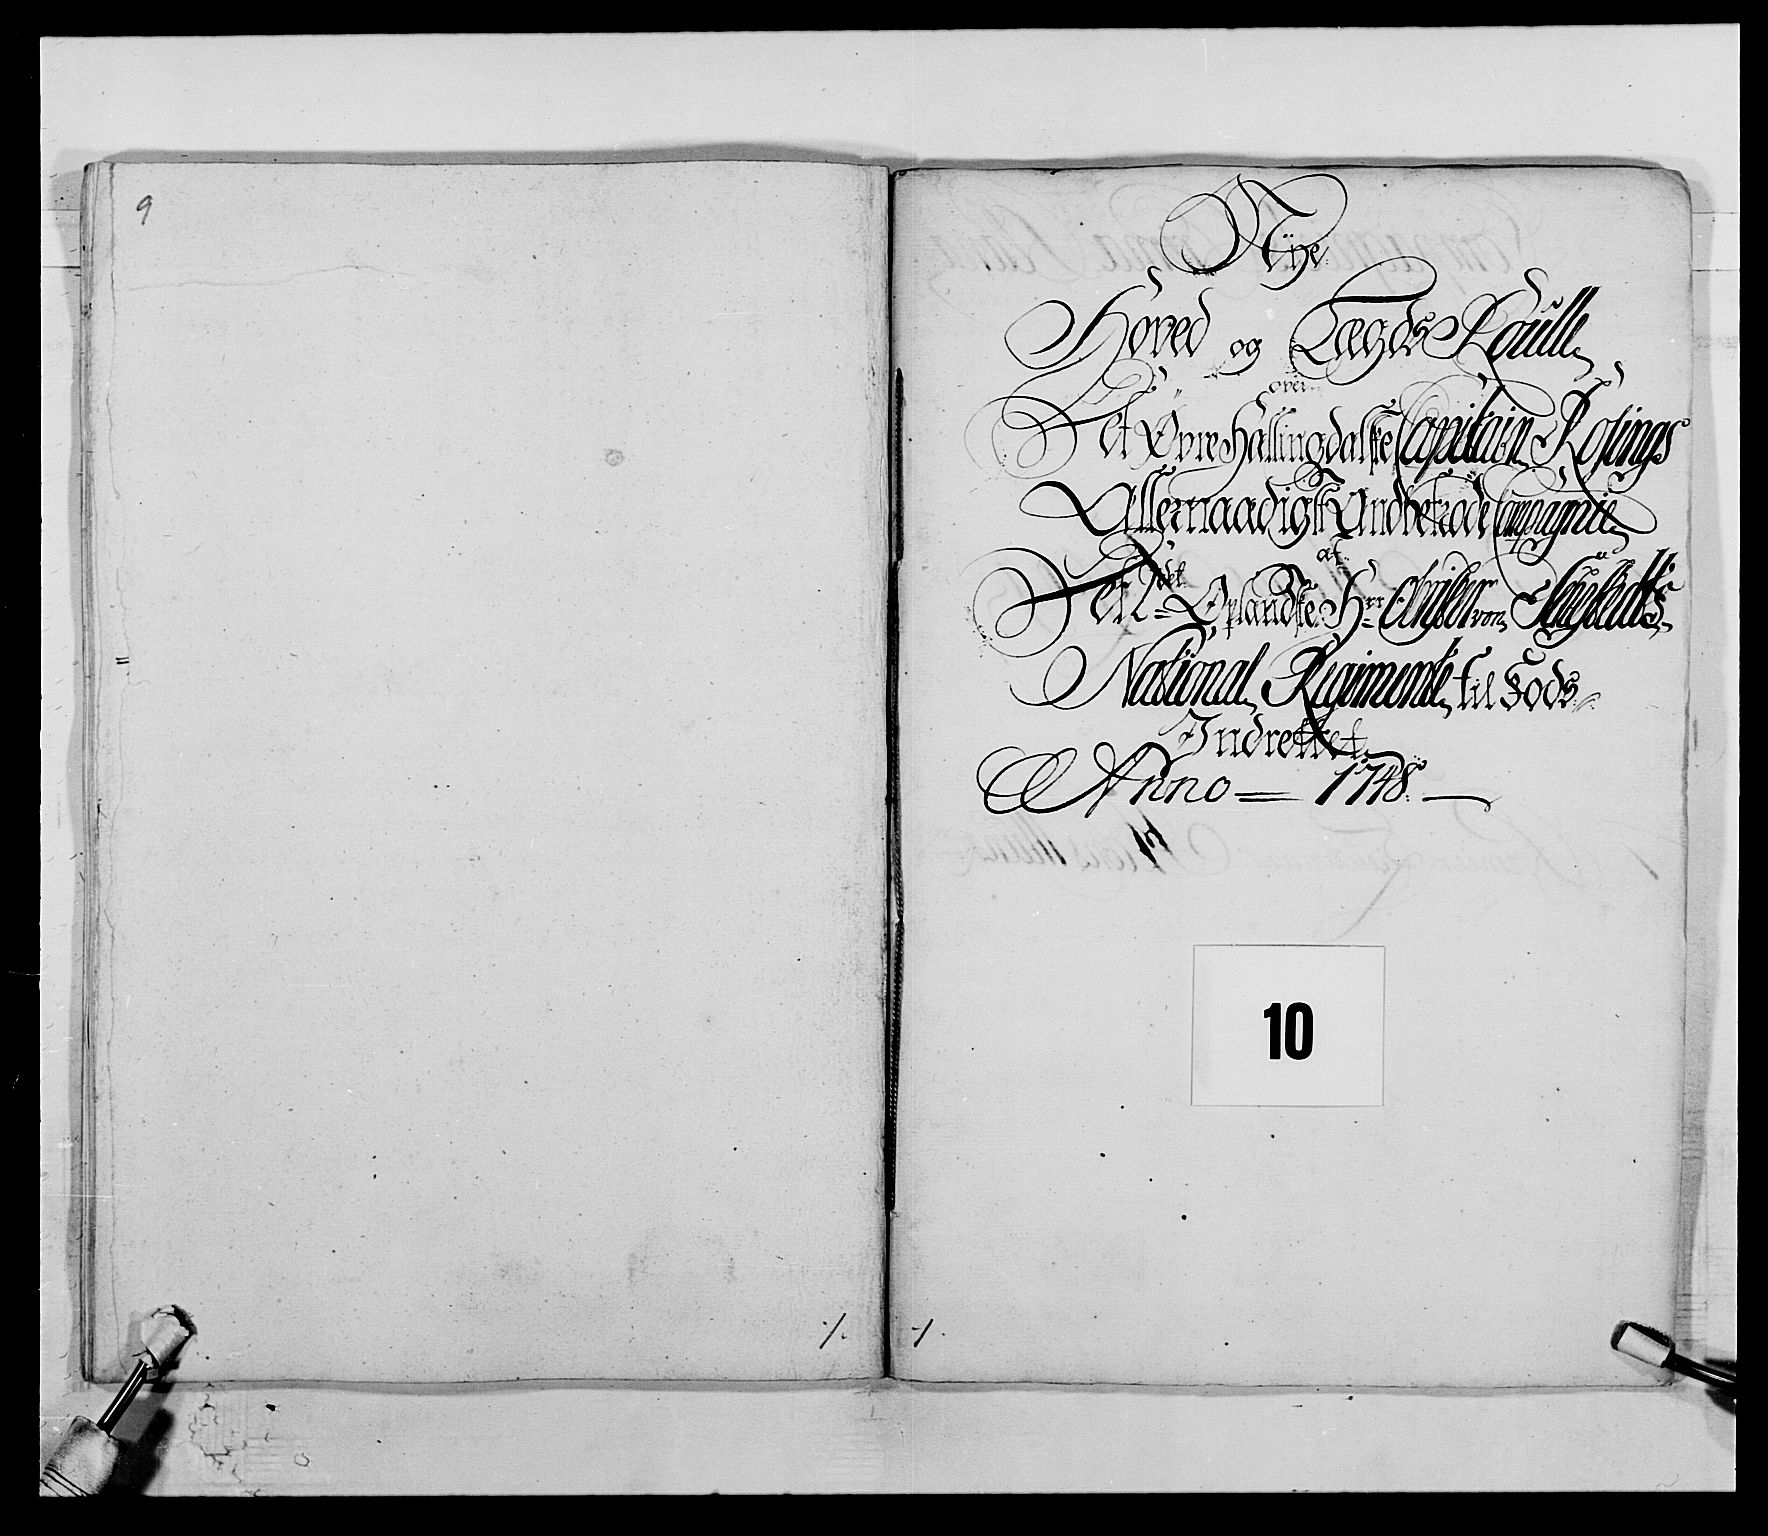 9
Nÿe
Hoved og Lægds Roulle
over
Det Øvre Hallingdalske Capitain Rosings
Allernaadigst Andbetroede Compagnie
af
Det 2det Oplandske Hrr Obrister von
National Regimente til Fods
Indrettet
Anno = 1748.
10